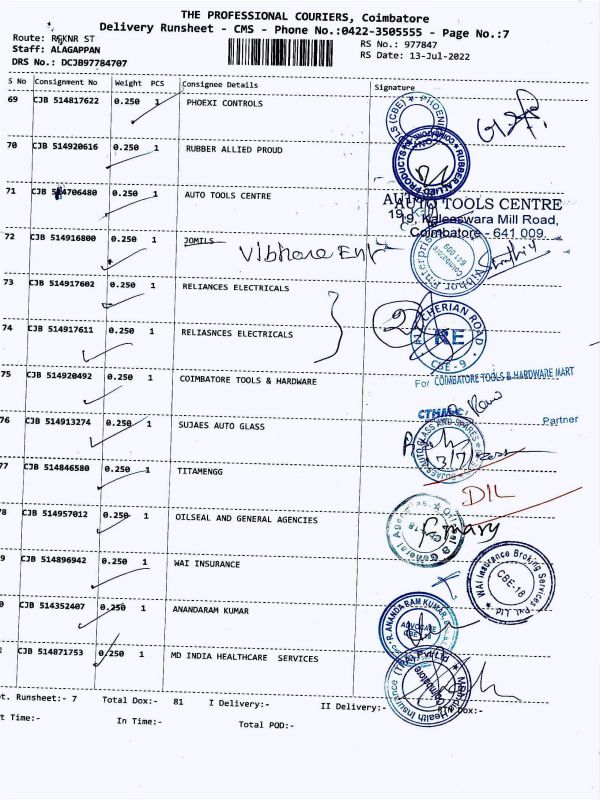 THE PROFESSIONAL COURIERS, Coimbatore
Delivery Runsheet - CMS - Phone No.:0422-3505555 - Page No.:7
Route: KNR ST
RS No.: 977847
Staff: ALAGAPPAN
RS Date: 13-Jul-2022
DRS No.: DCJB97784707
S No Consignment No Weight PCS Consignee Details Signature
69 CJB 514817622 0.250 1 PHOEXI CONTROLS
70 CJB 514920616 0.250 1 RUBBER ALLIED PROUD
RUBBER ALLIED PRODUCTS
71 CJB 514706480 0.250 1 AUTO TOOLS CENTRE
AUTO TOOLS CENTRE
19, Kaleeswara Mill Road,
Coimbatore - 641 009.
72 CJB 514916800 0.250 1 JOMILS
Vibhara Ent
73 CJB 514917602 0.250 1 RELIANCES ELECTRICALS
CHERIAN ROAD
RE
CBE-9
74 CJB 514917611 0.250 1 RELIASNCES ELECTRICALS
75 CJB 514920492 0.250 1 COIMBATORE TOOLS & HARDWARE
For COIMBATORE TOOLS & HARDWARE MART
Partner
76 CJB 514913274 0.250 1 SUJAES AUTO GLASS
SUJAES AUTO GLASS AND SPARES
77 CJB 514846580 0.250 1 TITAMENGG
DIL
78 CJB 514957012 0.250 1 OILSEAL AND GENERAL AGENCIES
Oilseal & General Agencies
9 CJB 514896942 0.250 1 WAI INSURANCE
WAI Insurance Broking Services Pvt. Ltd
CBE-18
0 CJB 514352407 0.250 1 ANANDARAM KUMAR
R. ANANDA RAM KUMAR
ADVOCATE
CBE-18
1 CJB 514871753 0.250 1 MD INDIA HEALTHCARE SERVICES
Health Insurance (TPA) Pvt Ltd
Coimbatore
t. Runsheet:- 7 Total Dox:- 81 I Delivery:- II Delivery:- RTN Dox:-
t Time:- In Time:- Total POD:-